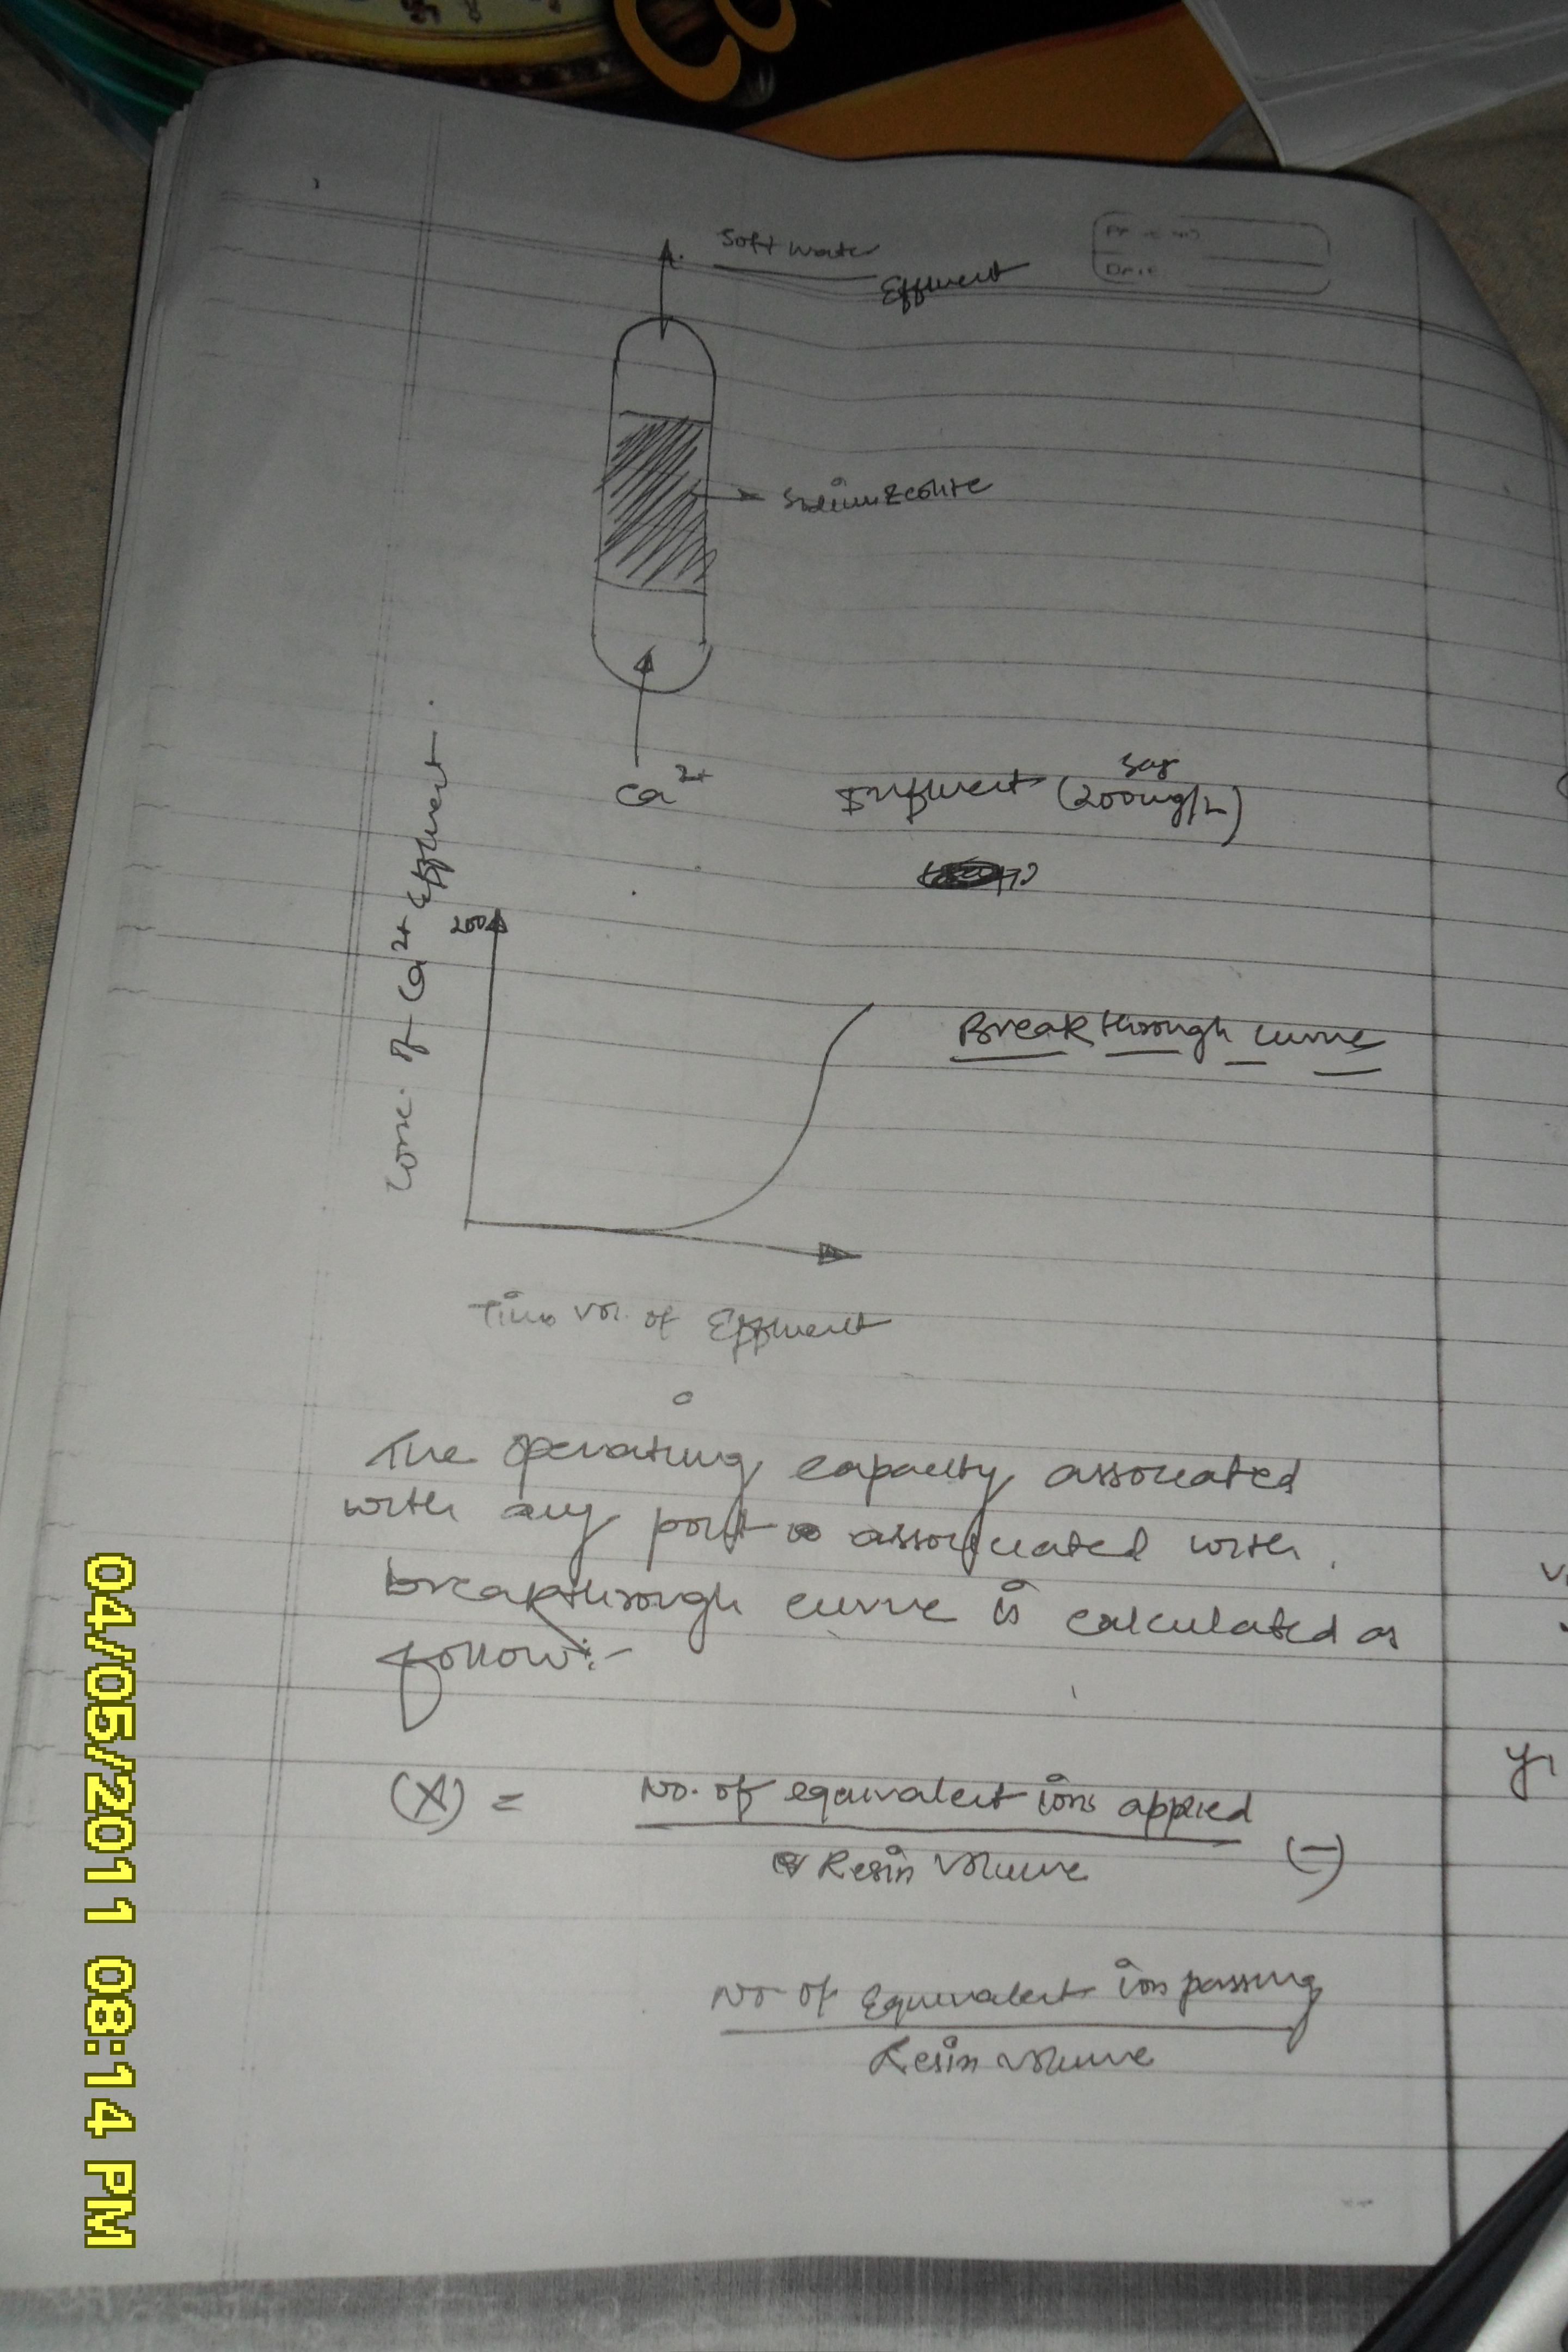 Soft water
Effluent
Sodium Zeolite
Ca2+
Influent (200mg/L)
say
Conc. of Ca2+ Effluent.
200
Breakthrough curve
Time Vol. of Effluent
The operating capacity associated
with any point associated with
breakthrough curve is calculated as
follow:-
(X) = No. of equivalent ions applied
Resin Volume (-)
No of Equivalent ions passing
Resin volume
y1
04/05/2011 08:14 PM